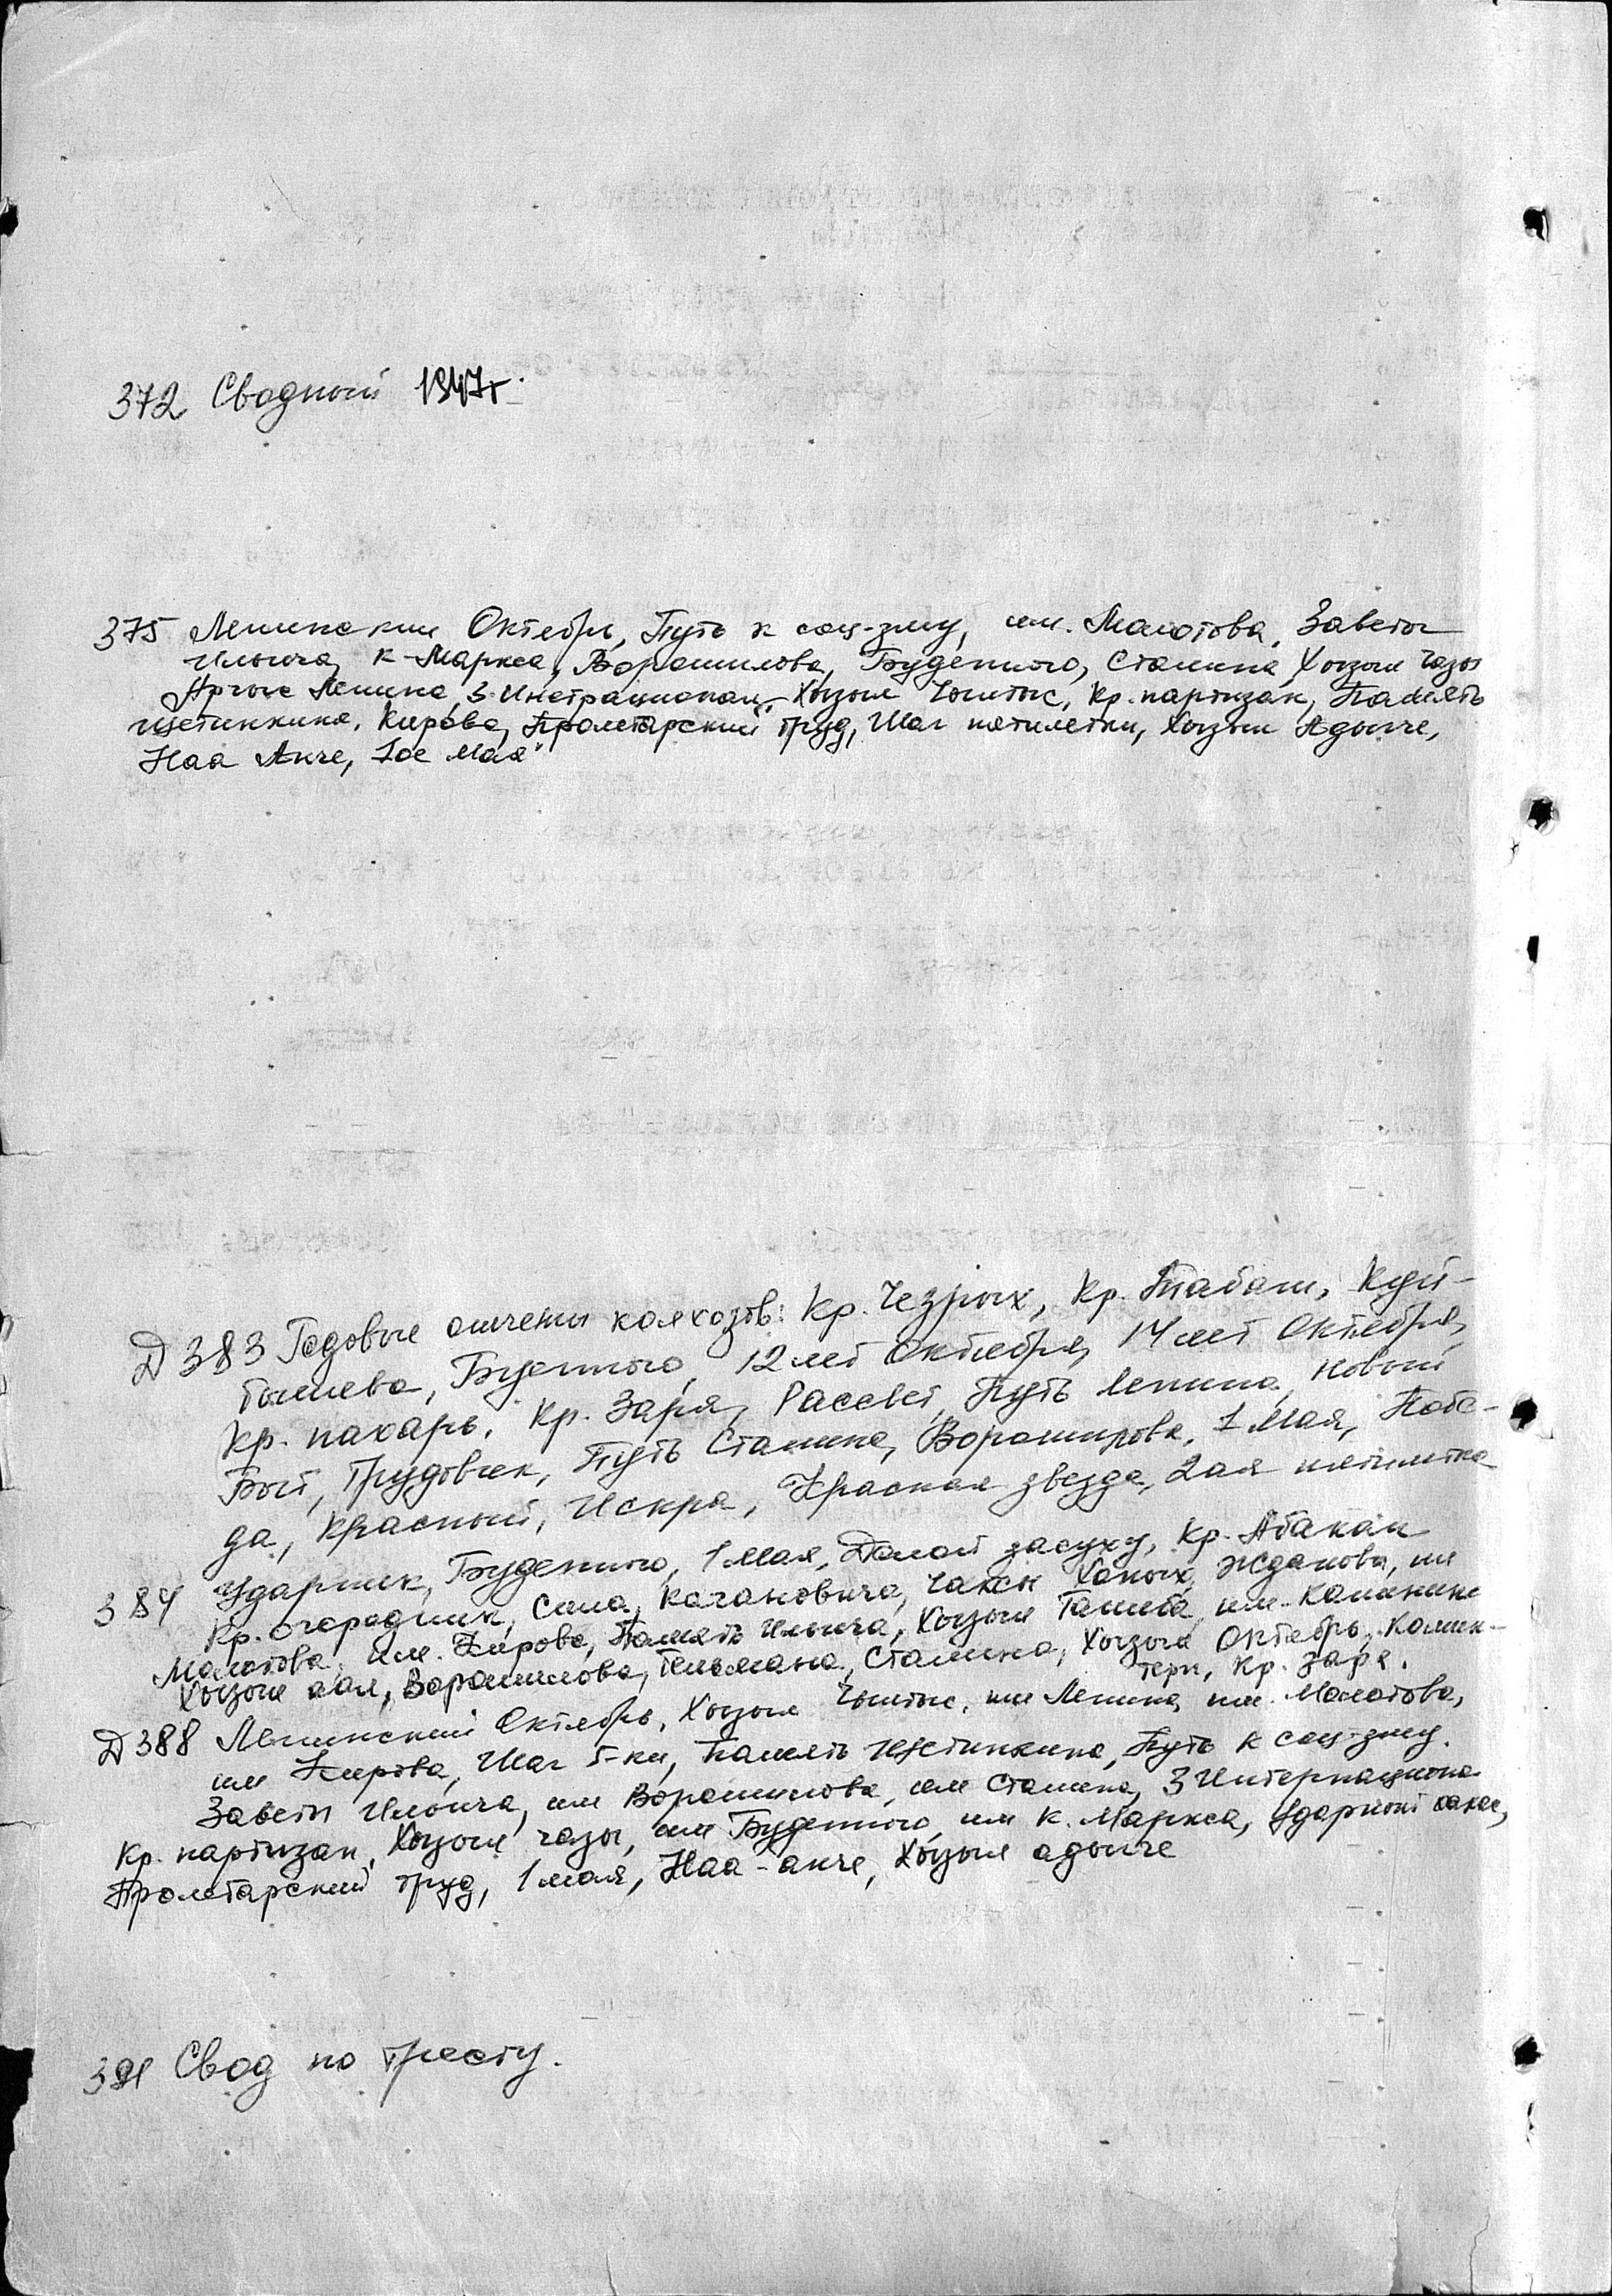 372 Сводный 1947г.
375 Ленинский Октябрь, Путь к соц-зму, им. Молотова, Заветы
Ильича, К-Маркса, Ворошилова, Буденного, Сталина, Хызыл Чазы
Аргыс Ленина, 3 Хызыл Чылтыс, Кр. партизан, Память
Щетинкина, Кирова, Пролетарский труд, Шаг пятилетки, Хызыл Адынче,
Наа Анче, 1ое Мая"
Д 383 Годовые отчеты колхозов: Кр. Чезрых, Кр. Табат, Куй-
бышева, Буденного, 12 лет Октября, 14 лет Октября,
Кр. пахарь, Кр. Заря, Рассвет, Путь Ленина, Новый
Быт, Трудовик, Путь Сталина, Ворошилова, 1 Мая, Побе-
да, Красный, Искра, Красная звезда, 2ая пятилетка
384 Ударник, Буденного, 1 Мая, Долой засуху, Кр. Абакан
Кр. огородник, Сила, Кагановича, Чахсы Хоных, Жданова, им
Молотова, им. Кирова, Память Ильича, Хызыл им. Калинина
Хызыл аал, Ворошилова, Тельмана, Сталина, Хызыл Октябрь, Комин-
терн, Кр. заря.
Д 388 Ленинский Октябрь, Хызыл Чылтыс, им Ленина, им. Молотова,
им Кирова, Шаг 5-ки, Память Щетинкина, Путь к соц-зму.
Заветы Ильича, им Ворошилова, им Сталина, 3 Интернационал
Кр. партизан, Хызыл чазы, им Буденного, им К. Маркса, Ударный хакас,
Пролетарский труд, 1 мая, Наа-анче, Хызыл адынче
391 Свод по тресту.